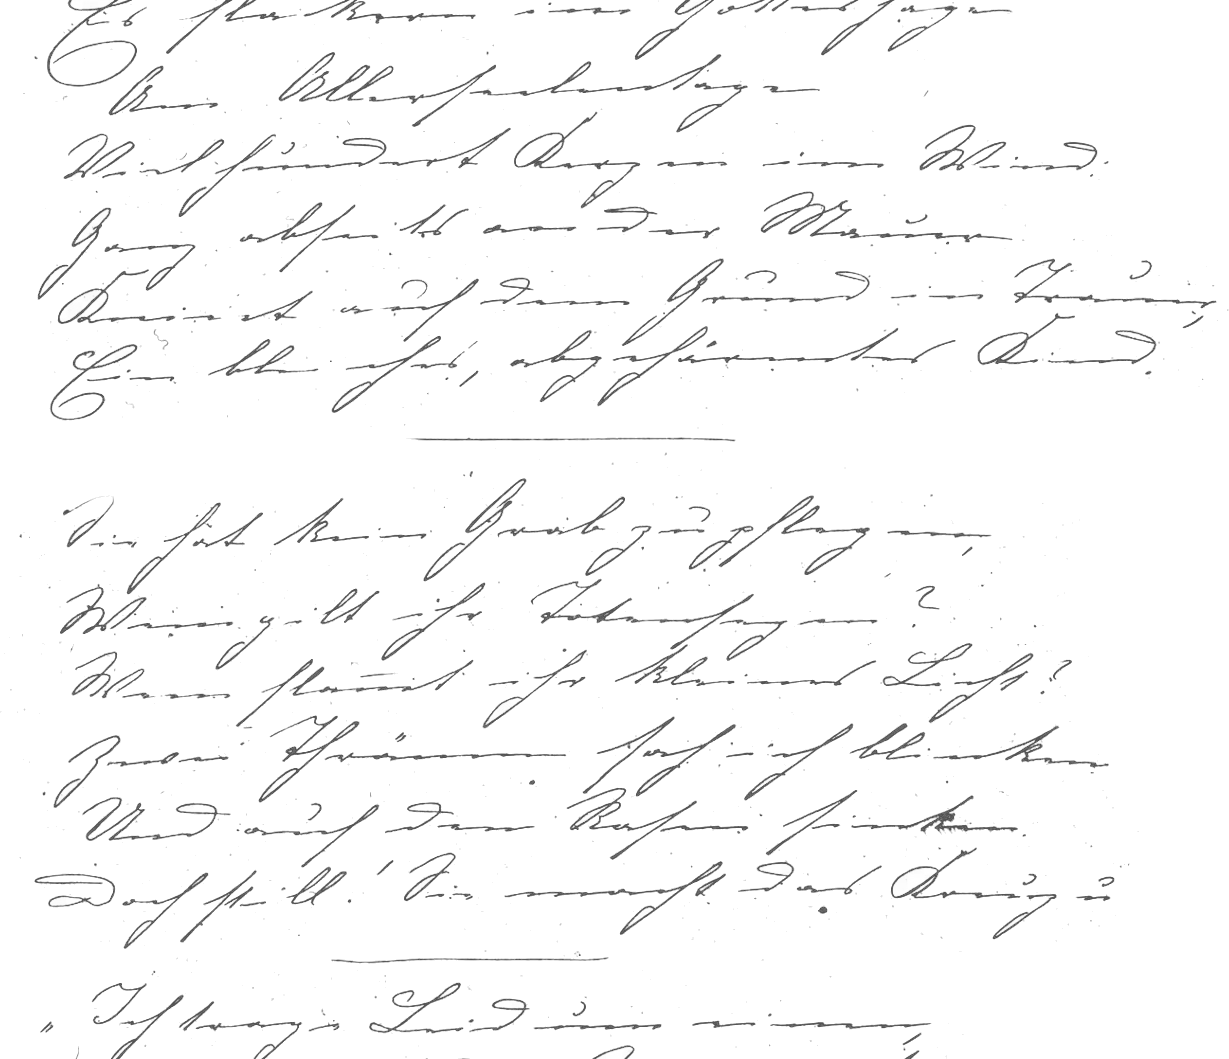 Es flackern im Gotteshage
Am Allerseelentage
Vielhundert Kerzen im Wind.
Ganz abseits an der Mauer
Kniet auf dem Grund in Trauer,
Ein bleiches, abgehärmtes Kind.
Sie hat kein Grab zu pflegen,
Wem gilt ihr Totensegen?
Wem flam̄t ihr kleines Licht?
Zwei Thränen sah ich blinken
Und auf den Rasen sinken
Doch still! Sie macht das Kreuz u
„Ich trage Leid um einen,